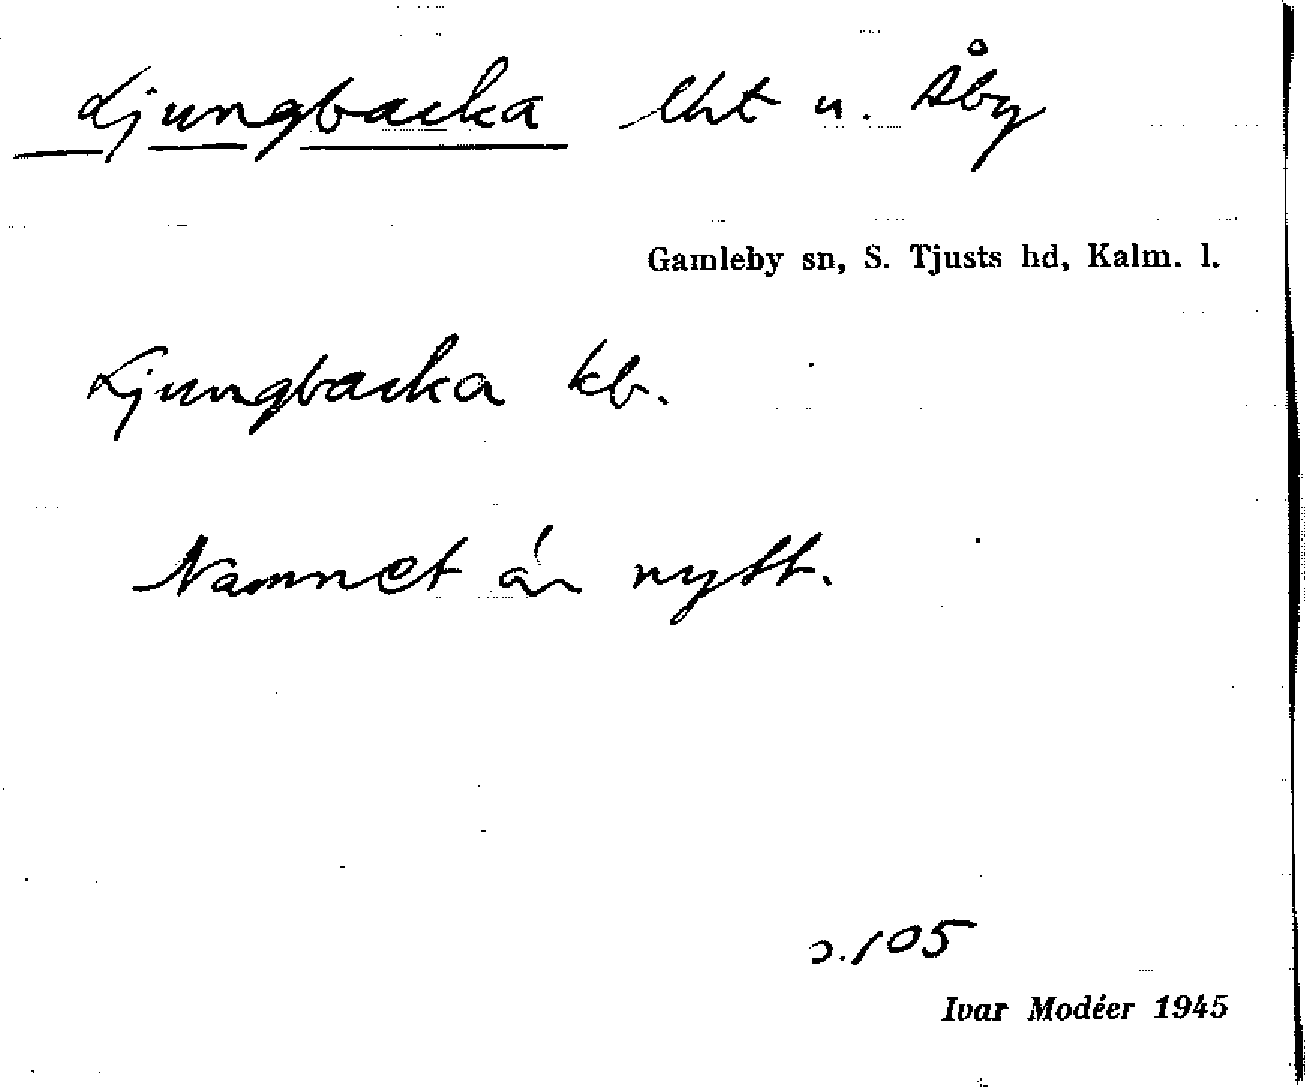 Ljungbacka lht u. Åby
Gamleby sn, S. Tjusts hd, Kalm. l.
Ljungbacka kb.
Namnet är nytt.
s. 105
Ivar Modéer 1945